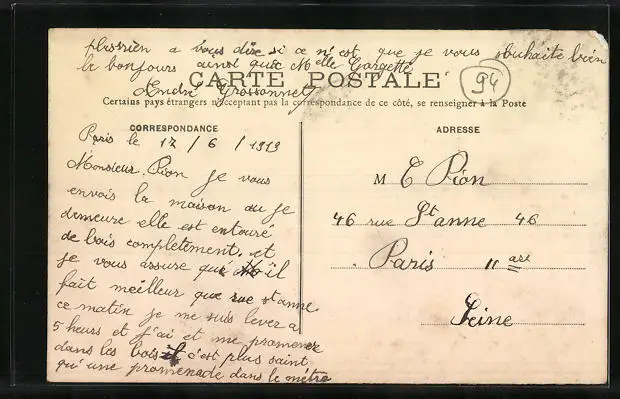 plus rien a vous dire si ce n'est que je vous souhaite bien
le bonjours ainsi que Melle Gargette
André Grossonnet
CARTE POSTALE
94
Certains pays étrangers n'acceptant pas la correspondance de ce côté, se renseigner à la Poste
CORRESPONDANCE
Paris le 17 / 6 / 1919
Monsieur Pion je vous
envois la maison ou je
demeure elle est entouré
de bois completement. et
je vous assure que il
fait meilleur que rue st anne
ce matin je me suis lever a
5 heurs et j'ai et me promener
dans les bois c'est plus saint
qu'une promenade dans le métro
ADRESSE
M E Pion
46 rue St anne 46
Paris 11 are
Seine